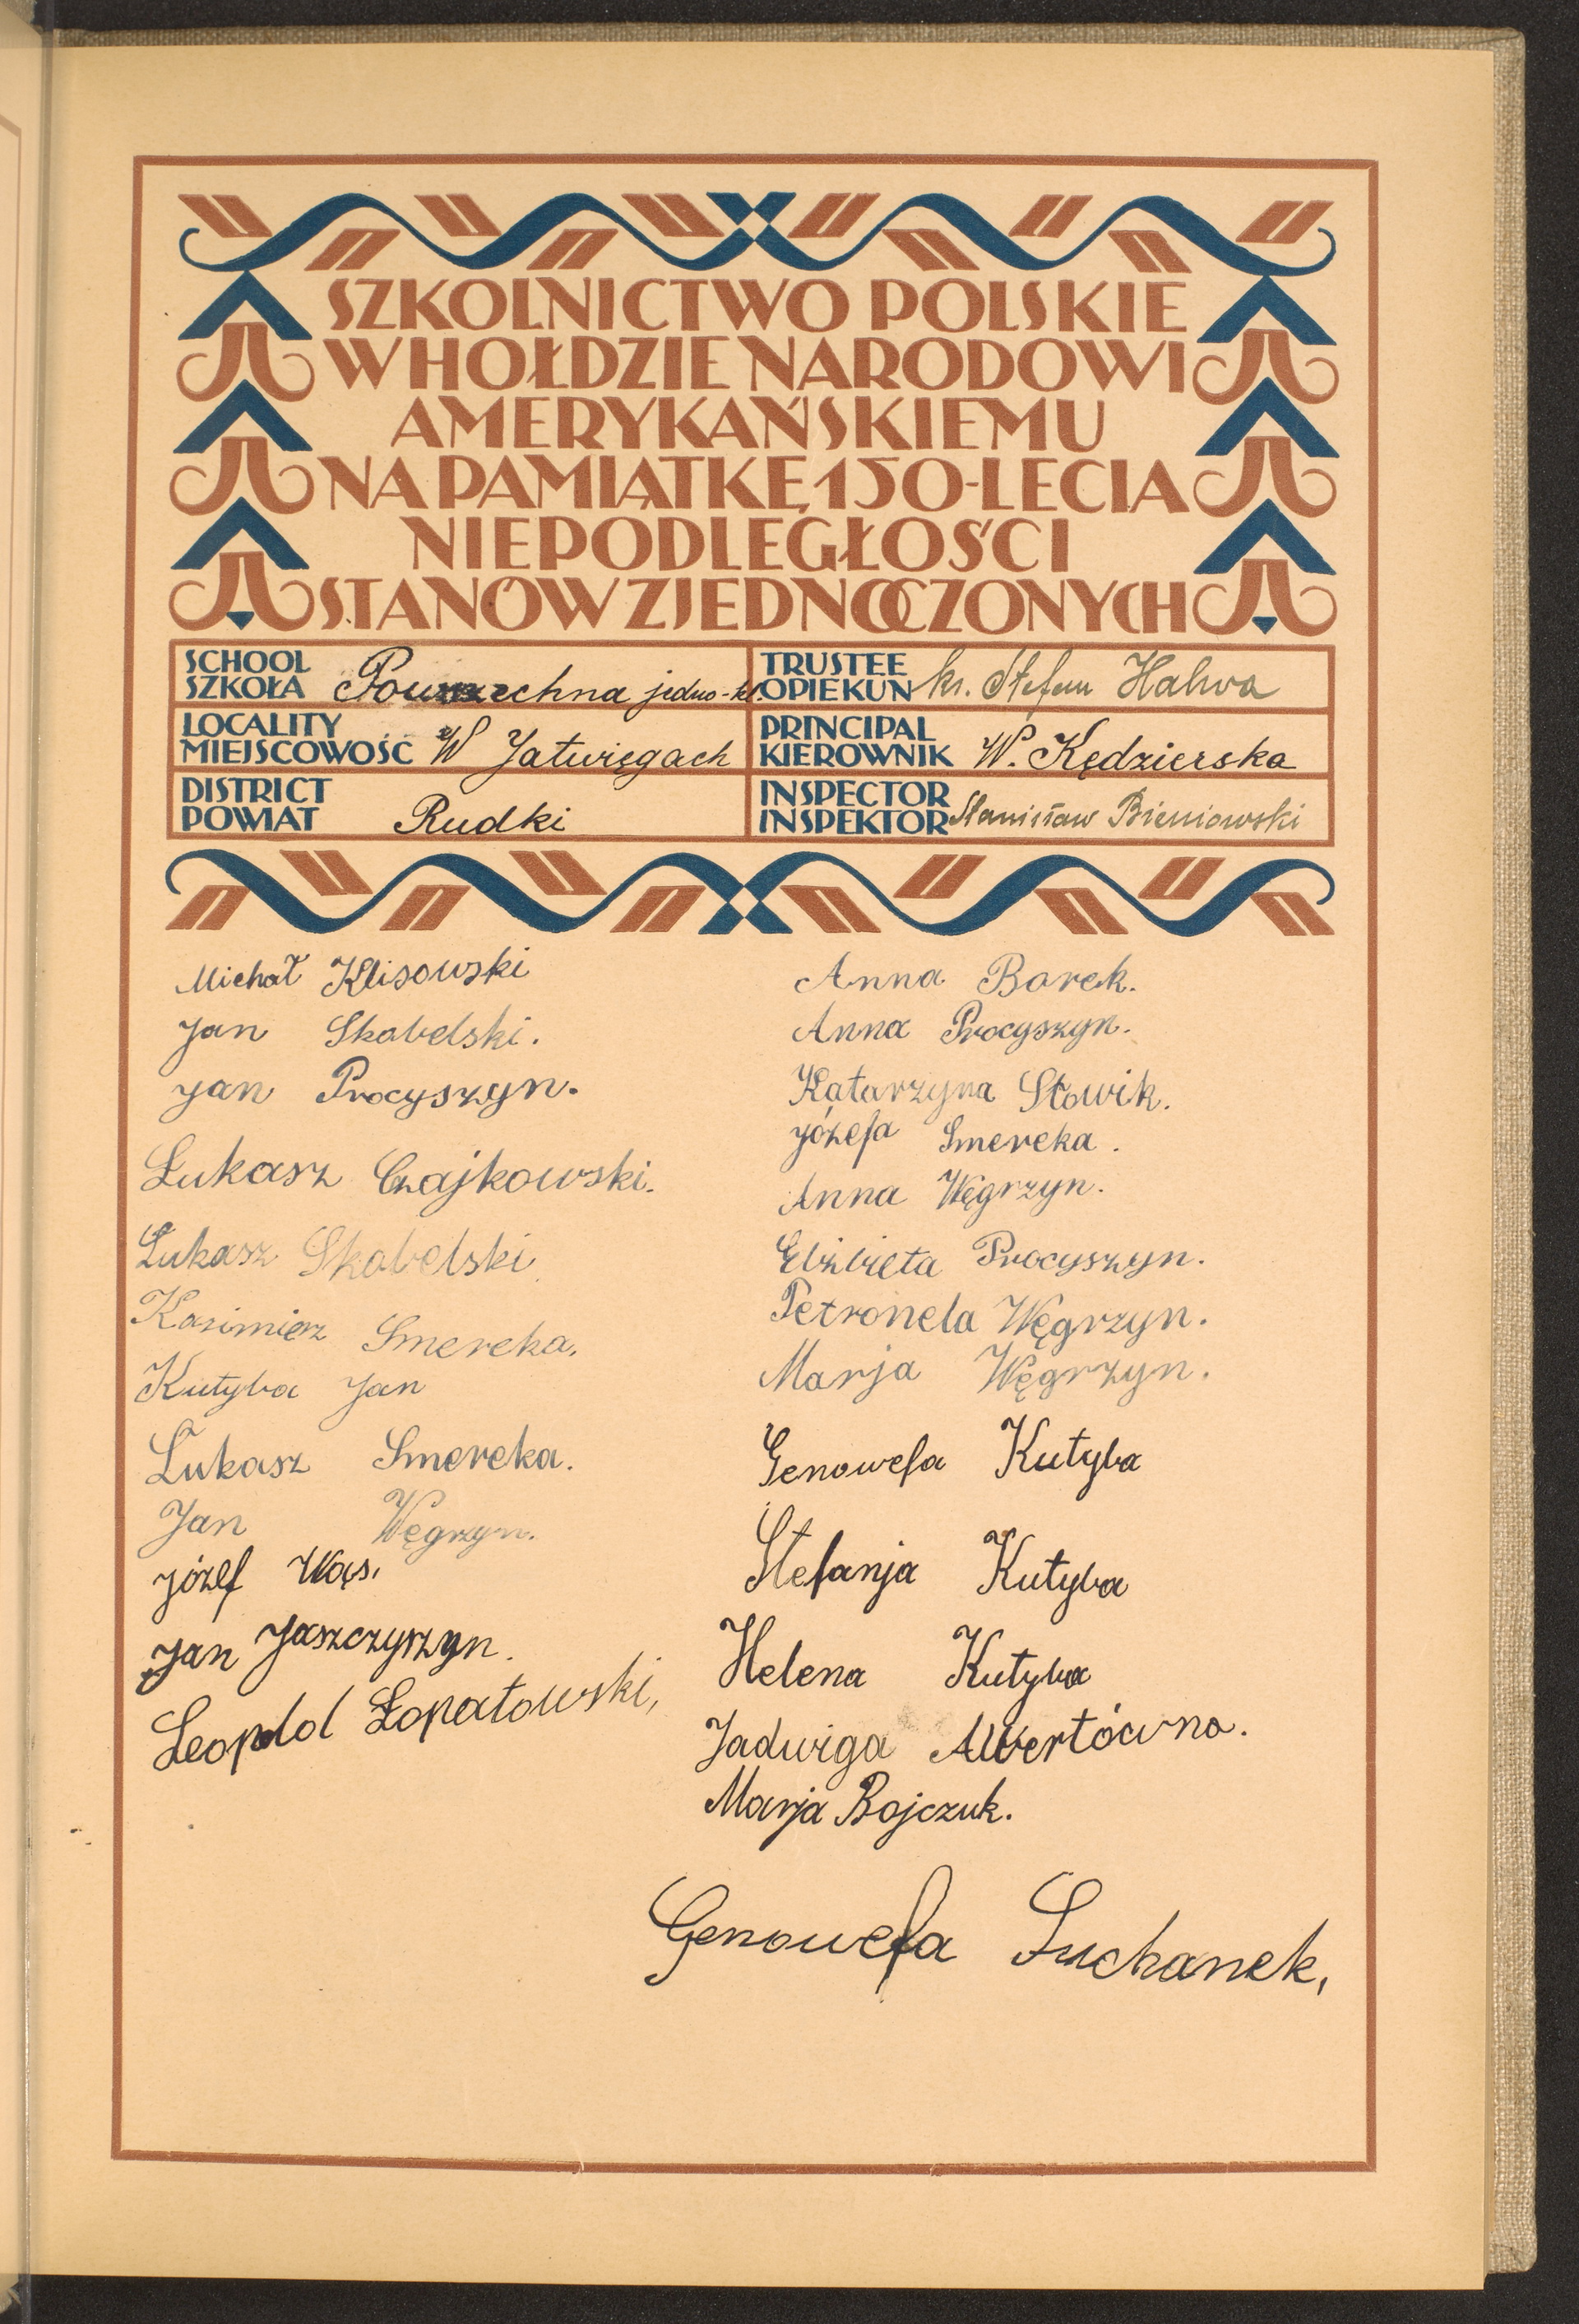 SZKOLNICTWO POLSKIE
W HOŁDZIE NARODOWI
AMERYKAŃSKIEMU
NA PAMIĄTKĘ 150-LECIA
NIEPODLEGŁOŚCI
STANÓW ZJEDNOCZONYCH
SCHOOL
SZKOŁA Powszechna jedno-kl.
LOCALITY
MIEJSCOWOŚĆ W Jatwięgach
DISTRICT
POWIAT Rudki
TRUSTEE
OPIEKUN ks. Stefan Halwa
PRINCIPAL
KIEROWNIK W. Kędzierska
INSPECTOR
INSPEKTOR Stanisław Bieniowski
Michał Klisowski
Jan Skabelski.
Jan Procyszyn.
Łukasz Czajkowski.
Łukasz Skabelski
Kazimierz Smereka.
Kutyba Jan
Łukasz Smereka.
Jan Węgrzyn.
Józef Wąs.
Jan Jaszczyszyn.
Leopold Łopatowski,
Anna Borek.
Anna Procyszyn.
Katarzyna Słowik.
Józefa Smereka.
Anna Węgrzyn.
Elżbieta Procyszyn.
Petronela Węgrzyn.
Marja Węgrzyn.
Genowefa Kutyba
Stefanja Kutyba
Helena Kutyba
Jadwiga Albertówna.
Marja Bojczuk.
Genowefa Suchanek,